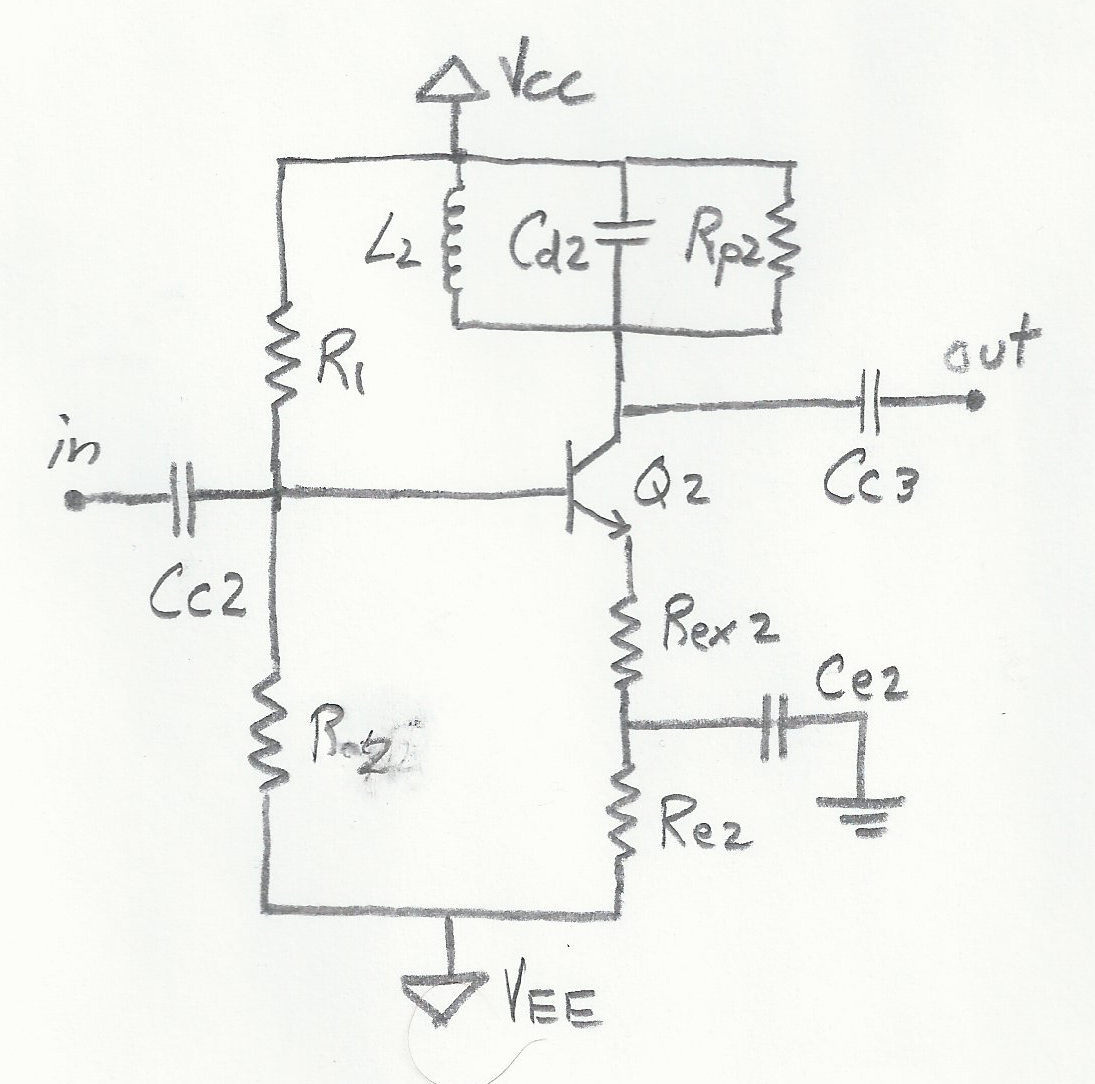 Vcc
L2
Cd2
Rp2
R1
out
in
Q2
Cc3
Cc2
Rex2
Ce2
Re2
VEE